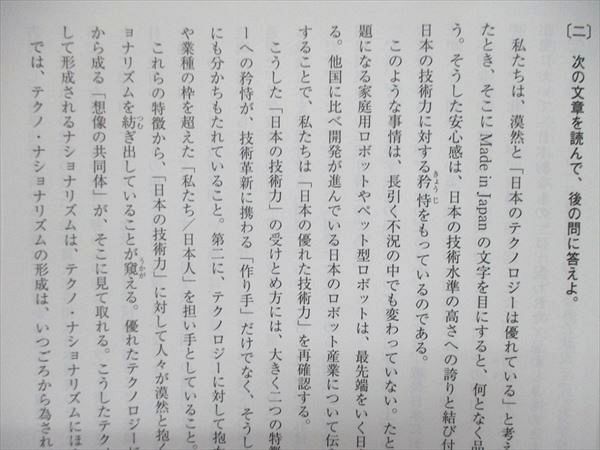 〔二〕 次の文章を読んで、後の問に答えよ。
私たちは、漠然と「日本のテクノロジーは優れている」と考え
たとき、そこに Made in Japan の文字を目にすると、何となく品
う。そうした安心感は、日本の技術水準の高さへの誇りと結び付
日本の技術力に対する矜恃をもっているのである。
きょうじ
このような事情は、長引く不況の中でも変わっていない。たと
題になる家庭用ロボットやペット型ロボットは、最先端をいく日
る。他国に比べ開発が進んでいる日本のロボット産業について伝
することで、私たちは「日本の優れた技術力」を再確認する。
こうした「日本の技術力」の受けとめ方には、大きく二つの特徴
ーへの矜恃が、技術革新に携わる「作り手」だけでなく、そうし
にも分かちもたれていること。第二に、テクノロジーに対して抱
や業種の枠を超えた「私たち／日本人」を担い手としていること。
これらの特徴から、「日本の技術力」に対して人々が漠然と抱く
ョナリズムを紡ぎ出していることが窺える。優れたテクノロジーに
つむ
うかが
から成る「想像の共同体」が、そこに見て取れる。こうしたテク
して形成されるナショナリズムは、テクノ・ナショナリズムにほ
では、テクノ・ナショナリズムの形成は、いつごろから為され